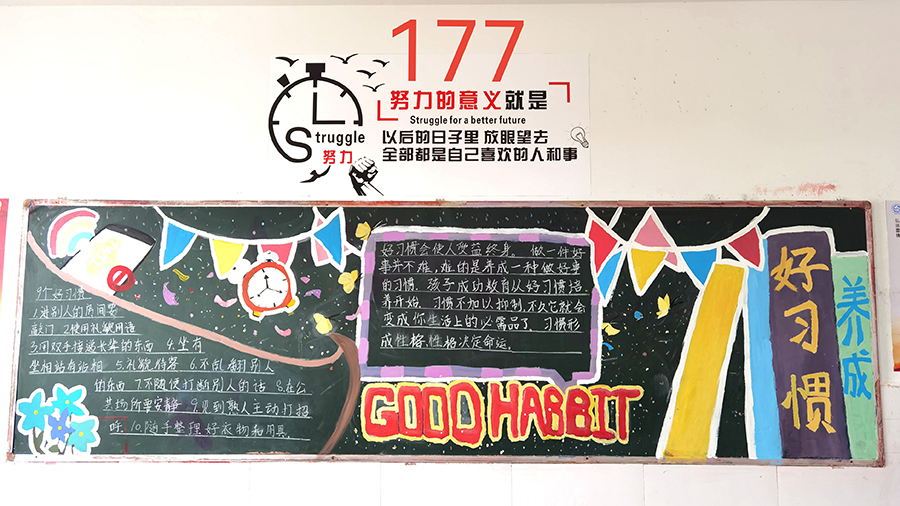 177
努力的意义就是
Struggle for a better future
以后的日子里 放眼望去
全部都是自己喜欢的人和事
SL
truggle
努力
9个好习惯
1.进别人的房间要
敲门 2.使用礼貌用语
3.用双手接递长辈的东西 4.坐有
坐相站有站相 5.礼貌待客 6.不乱翻别人
的东西 7.不随便打断别人的话 8.在公
共场所要安静 9.见到熟人主动打招
呼 10.随手整理好衣物和用具
好习惯会使人受益终身。做一件好
事并不难,难的是养成一种做好事
的习惯。孩子成功教育从好习惯培
养开始。习惯不加以抑制,不久它就会
变成你生活上的必需品了。习惯形
成性格,性格决定命运。
GOOD HABBIT
好习惯
养成